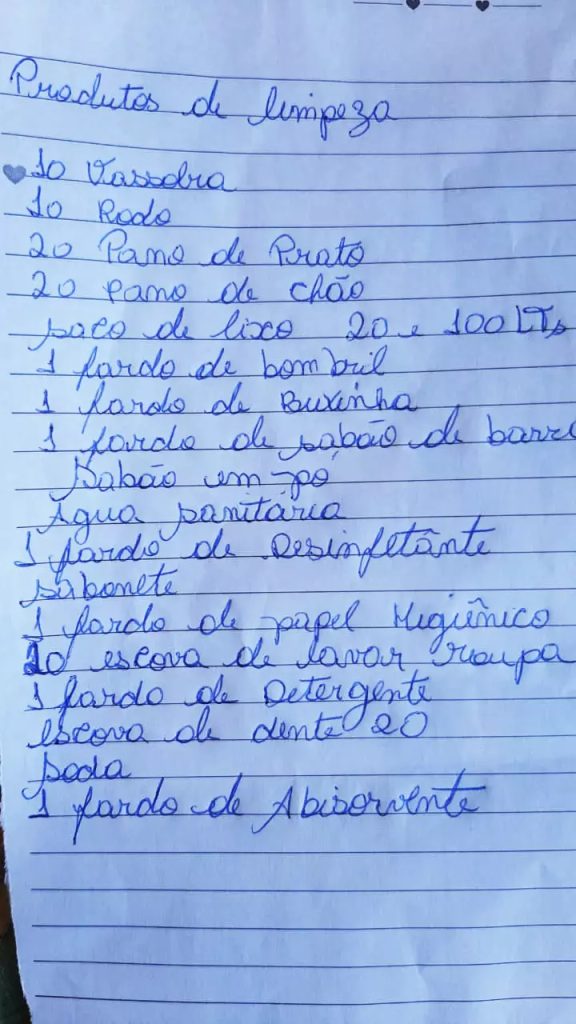 Produtos de limpeza
10 Vassobra
10 Rodo
20 Pano de Prato
20 pano de chão
saco de lixo 20 e 100 LTs
1 fardo de bombril
1 fardo de Buxinha
1 fardo de sabão de barr
Sabão em pó
Água sanitária
1 fardo de Desinfetânte
sabonete
1 fardo de papel Higiênico
20 escova de lavar roupa
1 fardo de Detergente
escova de dente 20
soda
1 fardo de Abisorvente